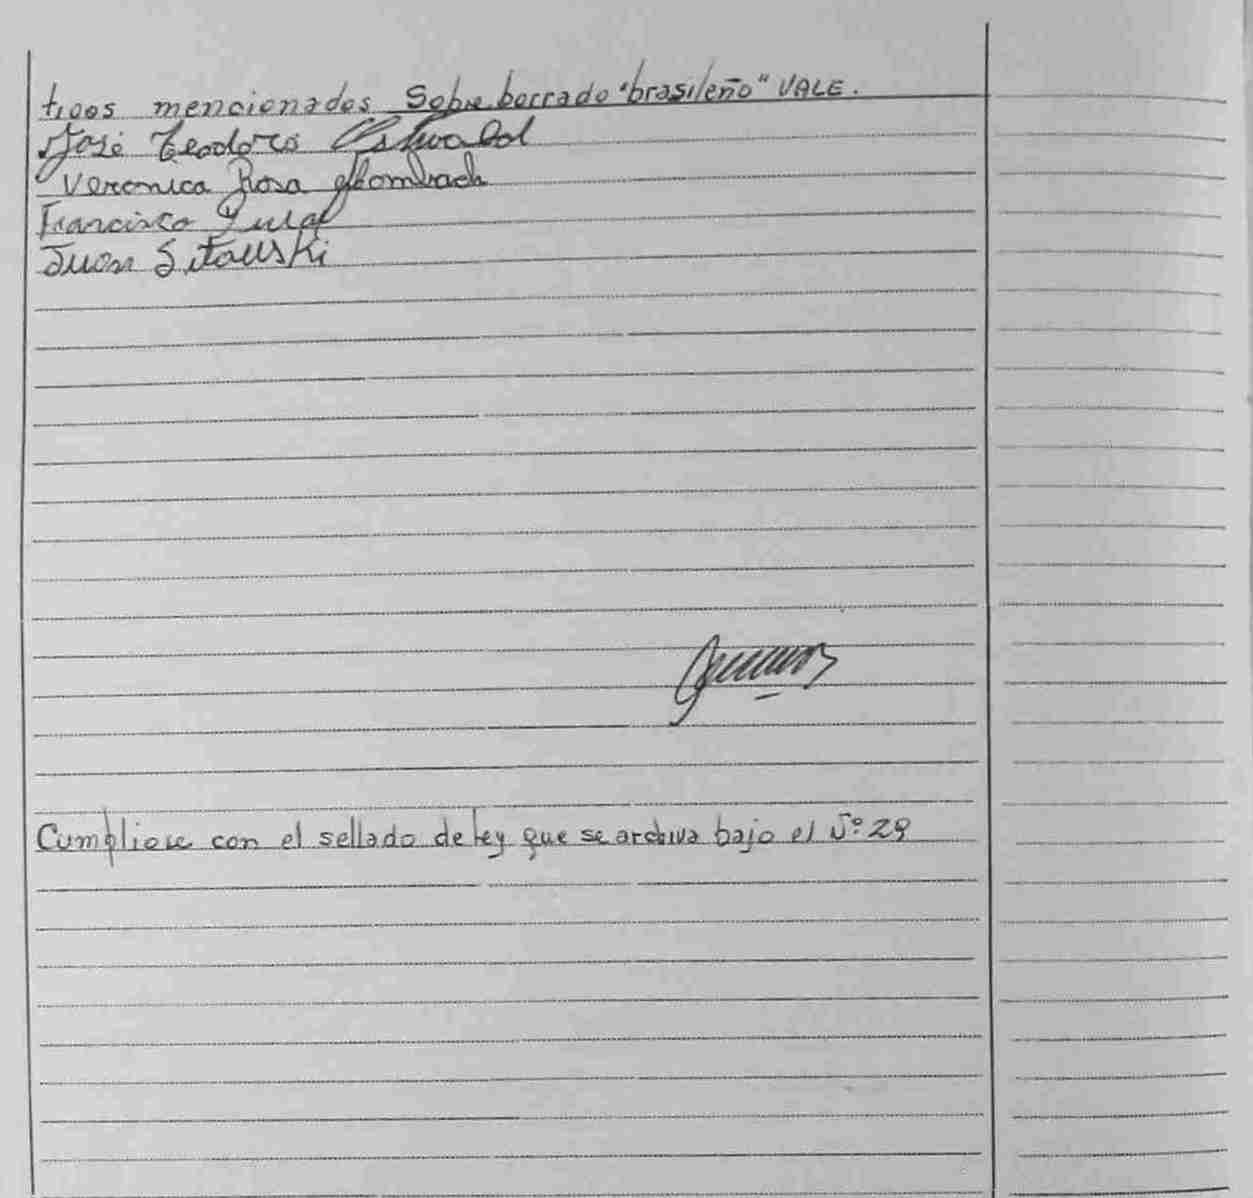 tigos mencionados Sobre borrado "brasileño" VALE.
José Teodoro Ostwald
Veronica Rosa
Francisco
Juan Sitauski
Cumpliose con el sellado de ley que se archiva bajo el Nº 29